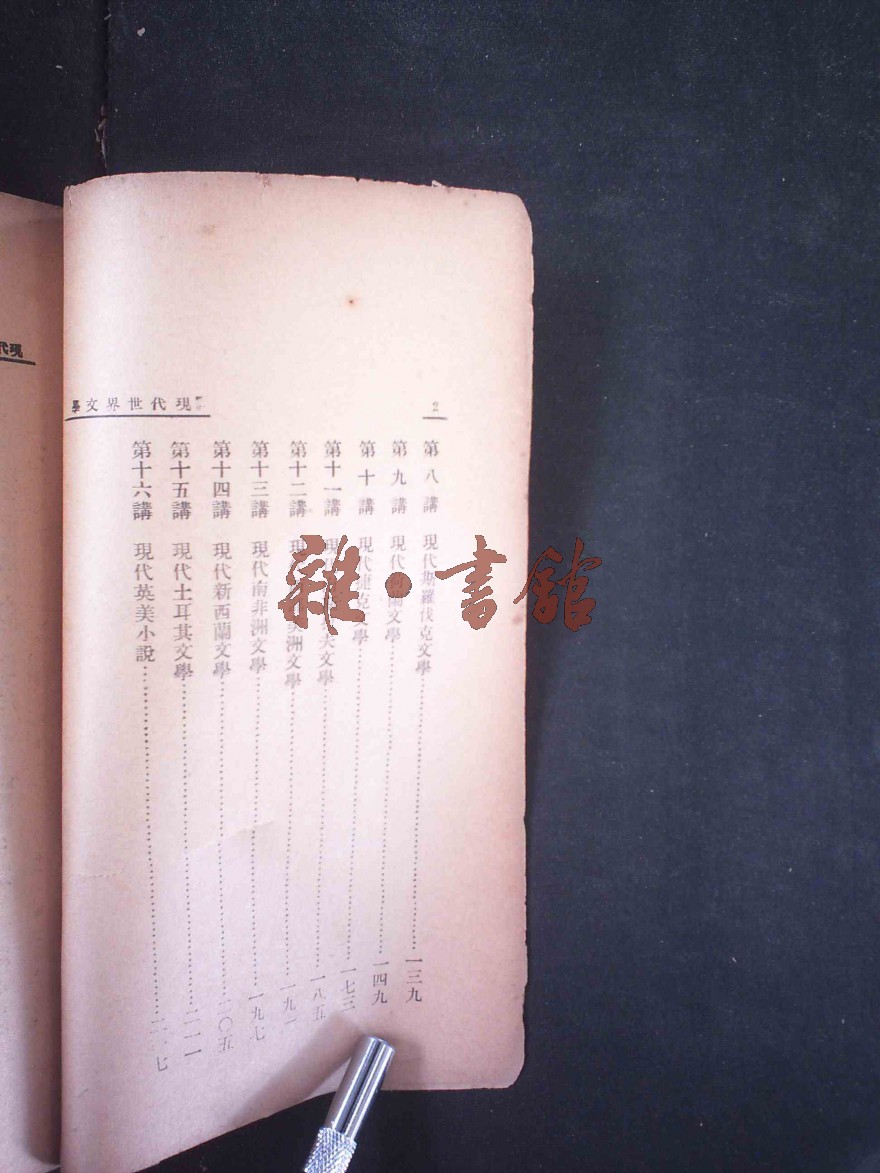 2
現代世界文學
第八講 現代斯羅伐克文學……一三九
第九講 現代蘭文學……一四九
第十講 現代捷克文學……一七三
第十一講 現大文學……一八五
第十二講 現美洲文學……一九一
第十三講 現代南非洲文學……一九七
第十四講 現代新西蘭文學……二〇五
第十五講 現代土耳其文學……二一一
第十六講 現代英美小說……二一七
現代
雜·書館